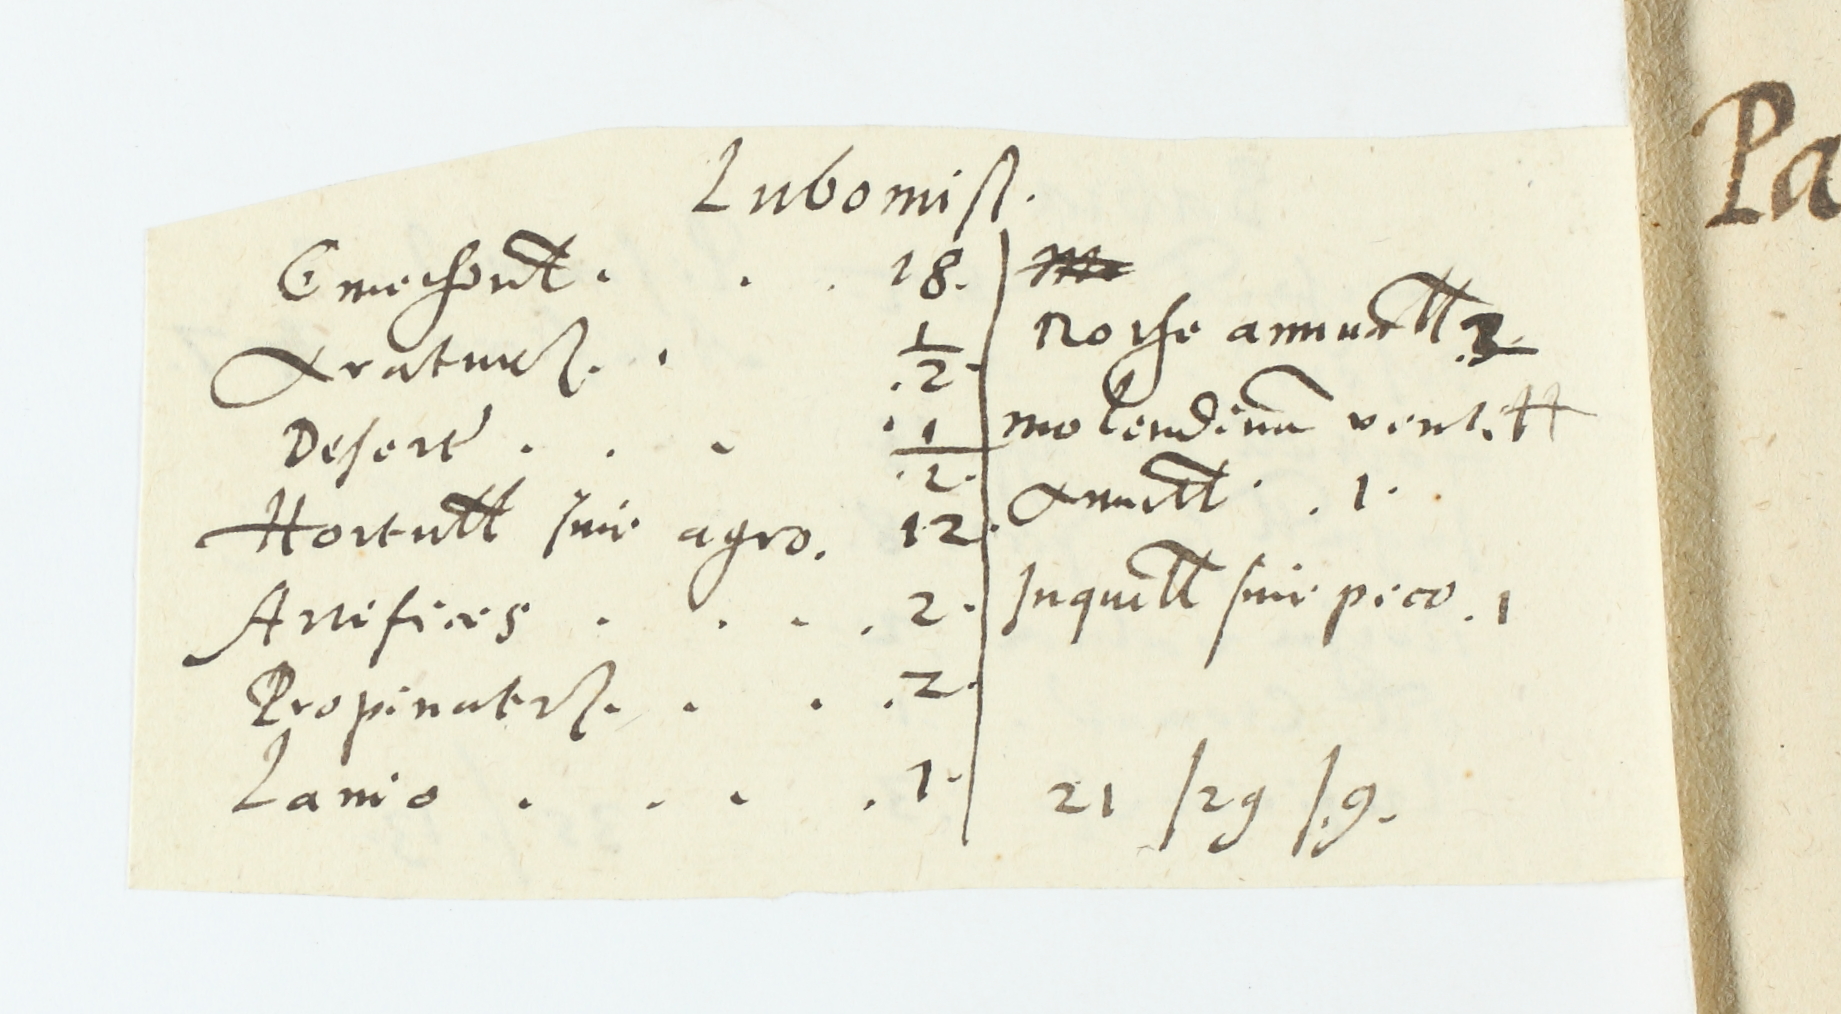 Lubomisl.
Cmethonu͠ll . . . 18.
Araturar. . 1/2.
Desert . . . 1/2.
Hortull sine agro. 12.
Artifices . . . . 2.
Propinator. . . . 2.
Lanio . . . . 1.
Rothe annuall 3
molendinu͠ ventill
Annuall . . 1.
Inquill sine peco . 1
21 /29 /.9.
Pa